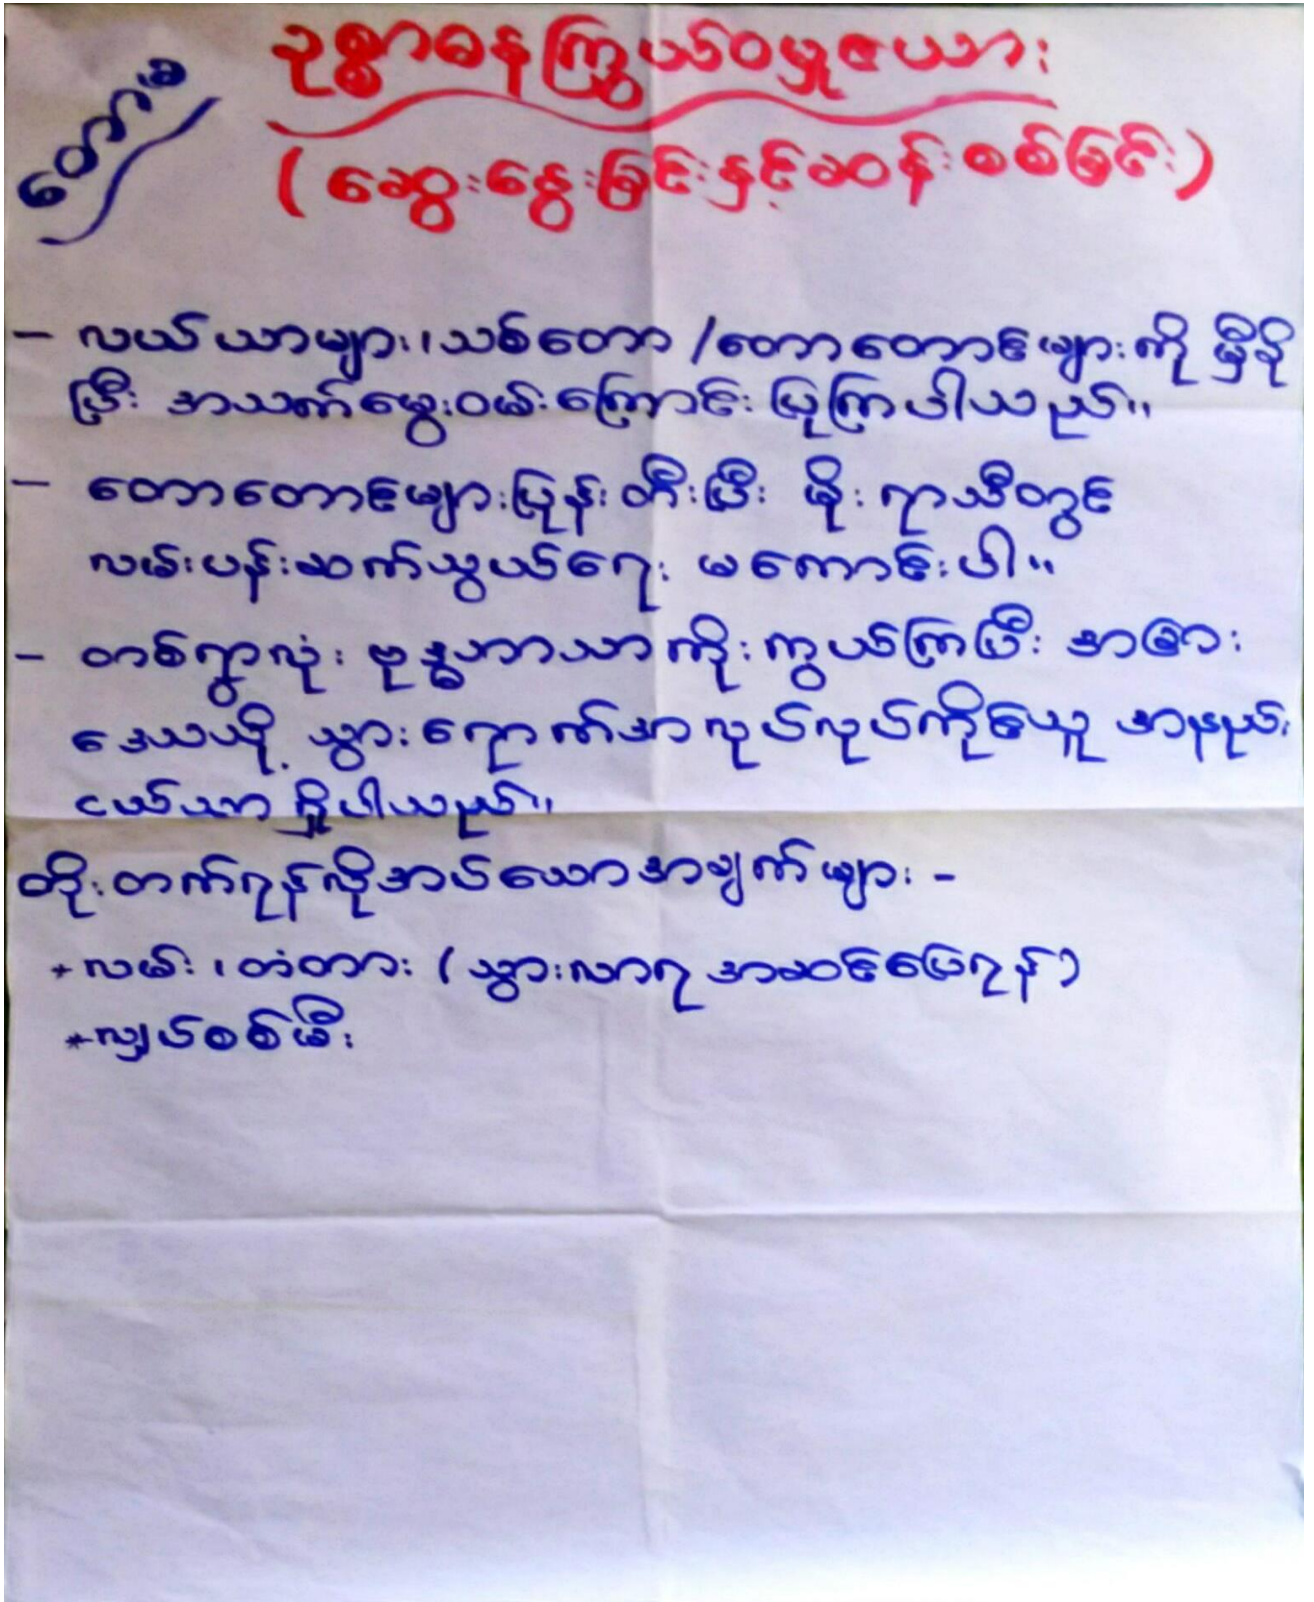 တောမ
ဥစ္စာဓနကြွယ်ဝမှုဇယား
(ဆွေးနွေးခြင်းနှင့်ဆန်းစစ်ခြင်း)
- လယ်ယာများ၊သစ်တော/တောတောင်များကို မှီခို
ပြီး အသက်မွေးဝမ်းကြောင်း ပြုကြပါသည်။
- တောတောင်များပြုန်းတီးပြီး မိုးရာသီတွင်
လမ်းပန်းဆက်သွယ်ရေး မကောင်းပါ။
- တစ်ရွာလုံး ဗုဒ္ဓဘာသာကိုးကွယ်ကြပြီး အခြား
ဒေသသို့ သွားရောက်အလုပ်လုပ်ကိုင်သူ အနည်း
ငယ်သာ ရှိပါသည်။
တိုးတက်ရန်လိုအပ်သောအချက်များ -
*လမ်း၊တံတား (သွားလာရ အဆင်ပြေရန်)
*လျှပ်စစ်မီး